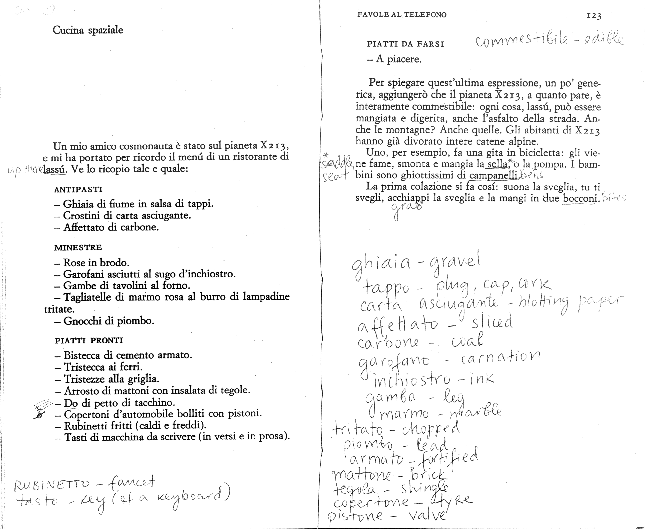 Cucina spaziale
Un mio amico cosmonauta è stato sul pianeta X213,
e mi ha portato per ricordo il menú di un ristorante di
lassú. Ve lo ricopio tale e quale:
ANTIPASTI
– Ghiaia di fiume in salsa di tappi.
– Crostini di carta asciugante.
– Affettato di carbone.
MINESTRE
– Rose in brodo.
– Garofani asciutti al sugo d'inchiostro.
– Gambe di tavolini al forno.
– Tagliatelle di marmo rosa al burro di lampadine
tritate.
– Gnocchi di piombo.
PIATTI PRONTI
– Bistecca di cemento armato.
– Tristecca ai ferri.
– Tristezze alla griglia.
– Arrosto di mattoni con insalata di tegole.
– Do di petto di tacchino.
– Copertoni d'automobile bolliti con pistoni.
– Rubinetti fritti (caldi e freddi).
– Tasti di macchina da scrivere (in versi e in prosa).
RUBINETTO – faucet
tasto – key (of a keyboard)
FAVOLE AL TELEFONO 123
commestibile – edible
PIATTI DA FARSI
– A piacere.
Per spiegare quest'ultima espressione, un po' gene-
rica, aggiungerò che il pianeta X213, a quanto pare, è
interamente commestibile: ogni cosa, lassú, può essere
mangiata e digerita, anche l'asfalto della strada. An-
che le montagne? Anche quelle. Gli abitanti di X213
hanno già divorato intere catene alpine.
Uno, per esempio, fa una gita in bicicletta: gli vie-
ne fame, smonta e mangia la sella, o la pompa. I bam-
bini sono ghiottissimi di campanelli.
La prima colazione si fa cosí: suona la sveglia, tu ti
svegli, acchiappi la sveglia e la mangi in due bocconi.
seat
grab
ghiaia – gravel
tappo – plug, cap, cork
carta asciugante – blotting paper
affettato – sliced
carbone – coal
garofano – carnation
inchiostro – ink
gamba – leg
marmo – marble
tritato – chopped
piombo – lead
armato – fortified
mattone – brick
tegola – shingle
copertone – tyre
pistone – valve